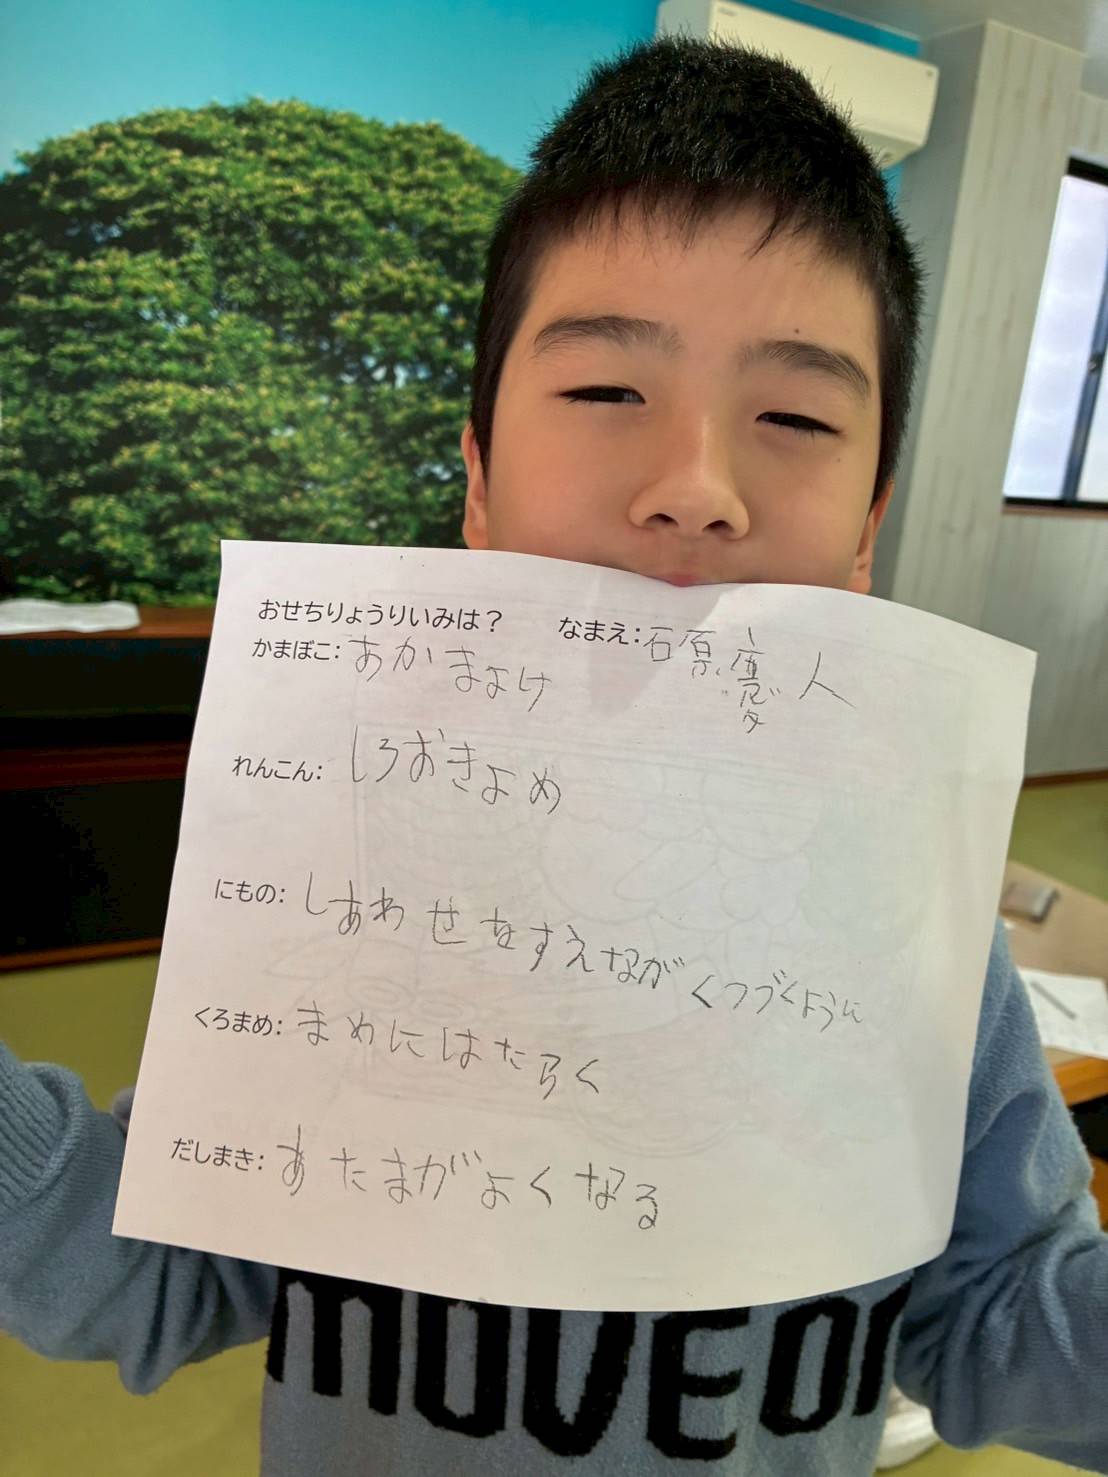 おせちりょうりいみは？ なまえ：石原慶人
かまぼこ：あかまよけ
れんこん：しろおきよめ
にもの：しあわせをすえながくつづくように
くろまめ：まめにはたらく
だしまき：あたまがよくなる
MOVEON